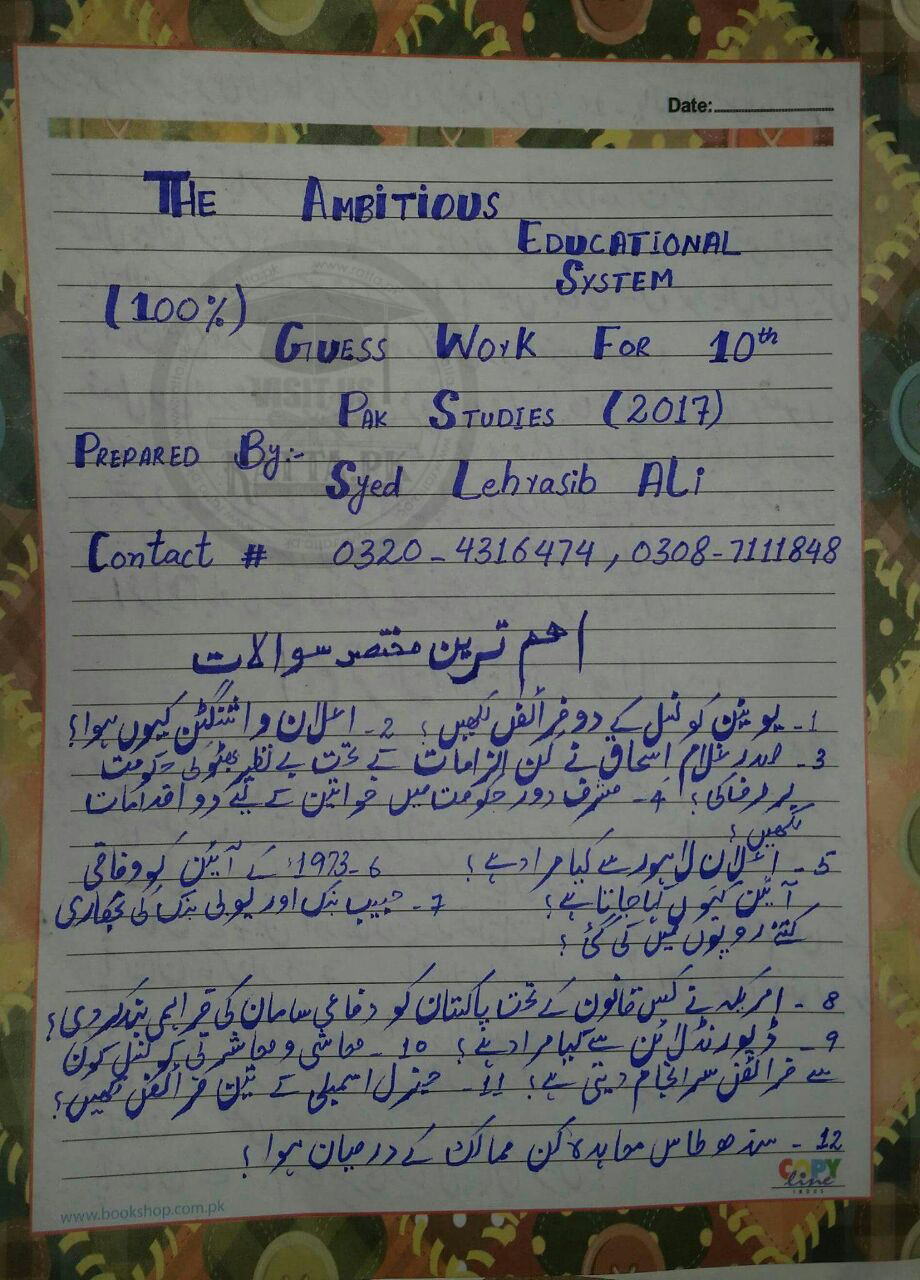 Date:
THE AMBITIOUS
EDUCATIONAL
SYSTEM
(100%)
GUESS WORK FOR 10th
PAK STUDIES (2017)
PREPARED By:-
Syed Lehrasib ALi
Contact # 0320-4316474, 0308-7111848
اہم ترین مختصر سوالات
1- یونین کونسل کے دو فرائض لکھیں؟ 2- اعلان واشنگٹن کیوں ہوا؟
3- صدر غلام اسحاق نے کن الزامات کے تحت بے نظیر بھٹو کی حکومت
برطرف کی؟ 4- مشرف دور حکومت میں خواتین کے لیے دو اقدامات
لکھیں؟
5- اعلان لاہور سے کیا مراد ہے؟ 6- 1973ء کے آئین کو وفاقی
آئین کیوں کہا جاتا ہے؟ 7- حبیب بنک اور یو بی بنک کی نجکاری
کتنے روپوں میں کی گئی؟
8- امریکہ نے کس قانون کے تحت پاکستان کو دفاعی سامان کی فراہمی بند کر دی؟
9- ڈیورنڈ لائن سے کیا مراد ہے؟ 10- معاشی و معاشرتی کونسل کون
سے فرائض سرانجام دیتی ہے؟ 11- جنرل اسمبلی کے تین فرائض لکھیں؟
12- سندھ طاس معاہدہ کن ممالک کے درمیان ہوا؟
COPY
line
www.bookshop.com.pk